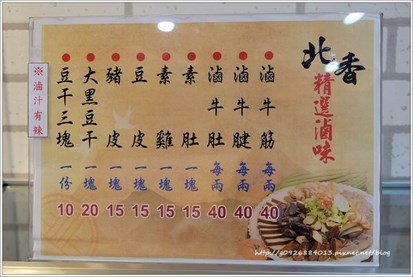 北香
精選滷味
滷牛筋 每兩 40
滷牛腱 每兩 40
滷牛肚 每兩 40
素肚 一塊 15
素雞 一塊 15
豆皮 一塊 15
豬皮 一塊 15
大黑豆干 一塊 20
豆干三塊 一份 10
※滷汁有辣
http://s0926884015.pixnet.net/blog